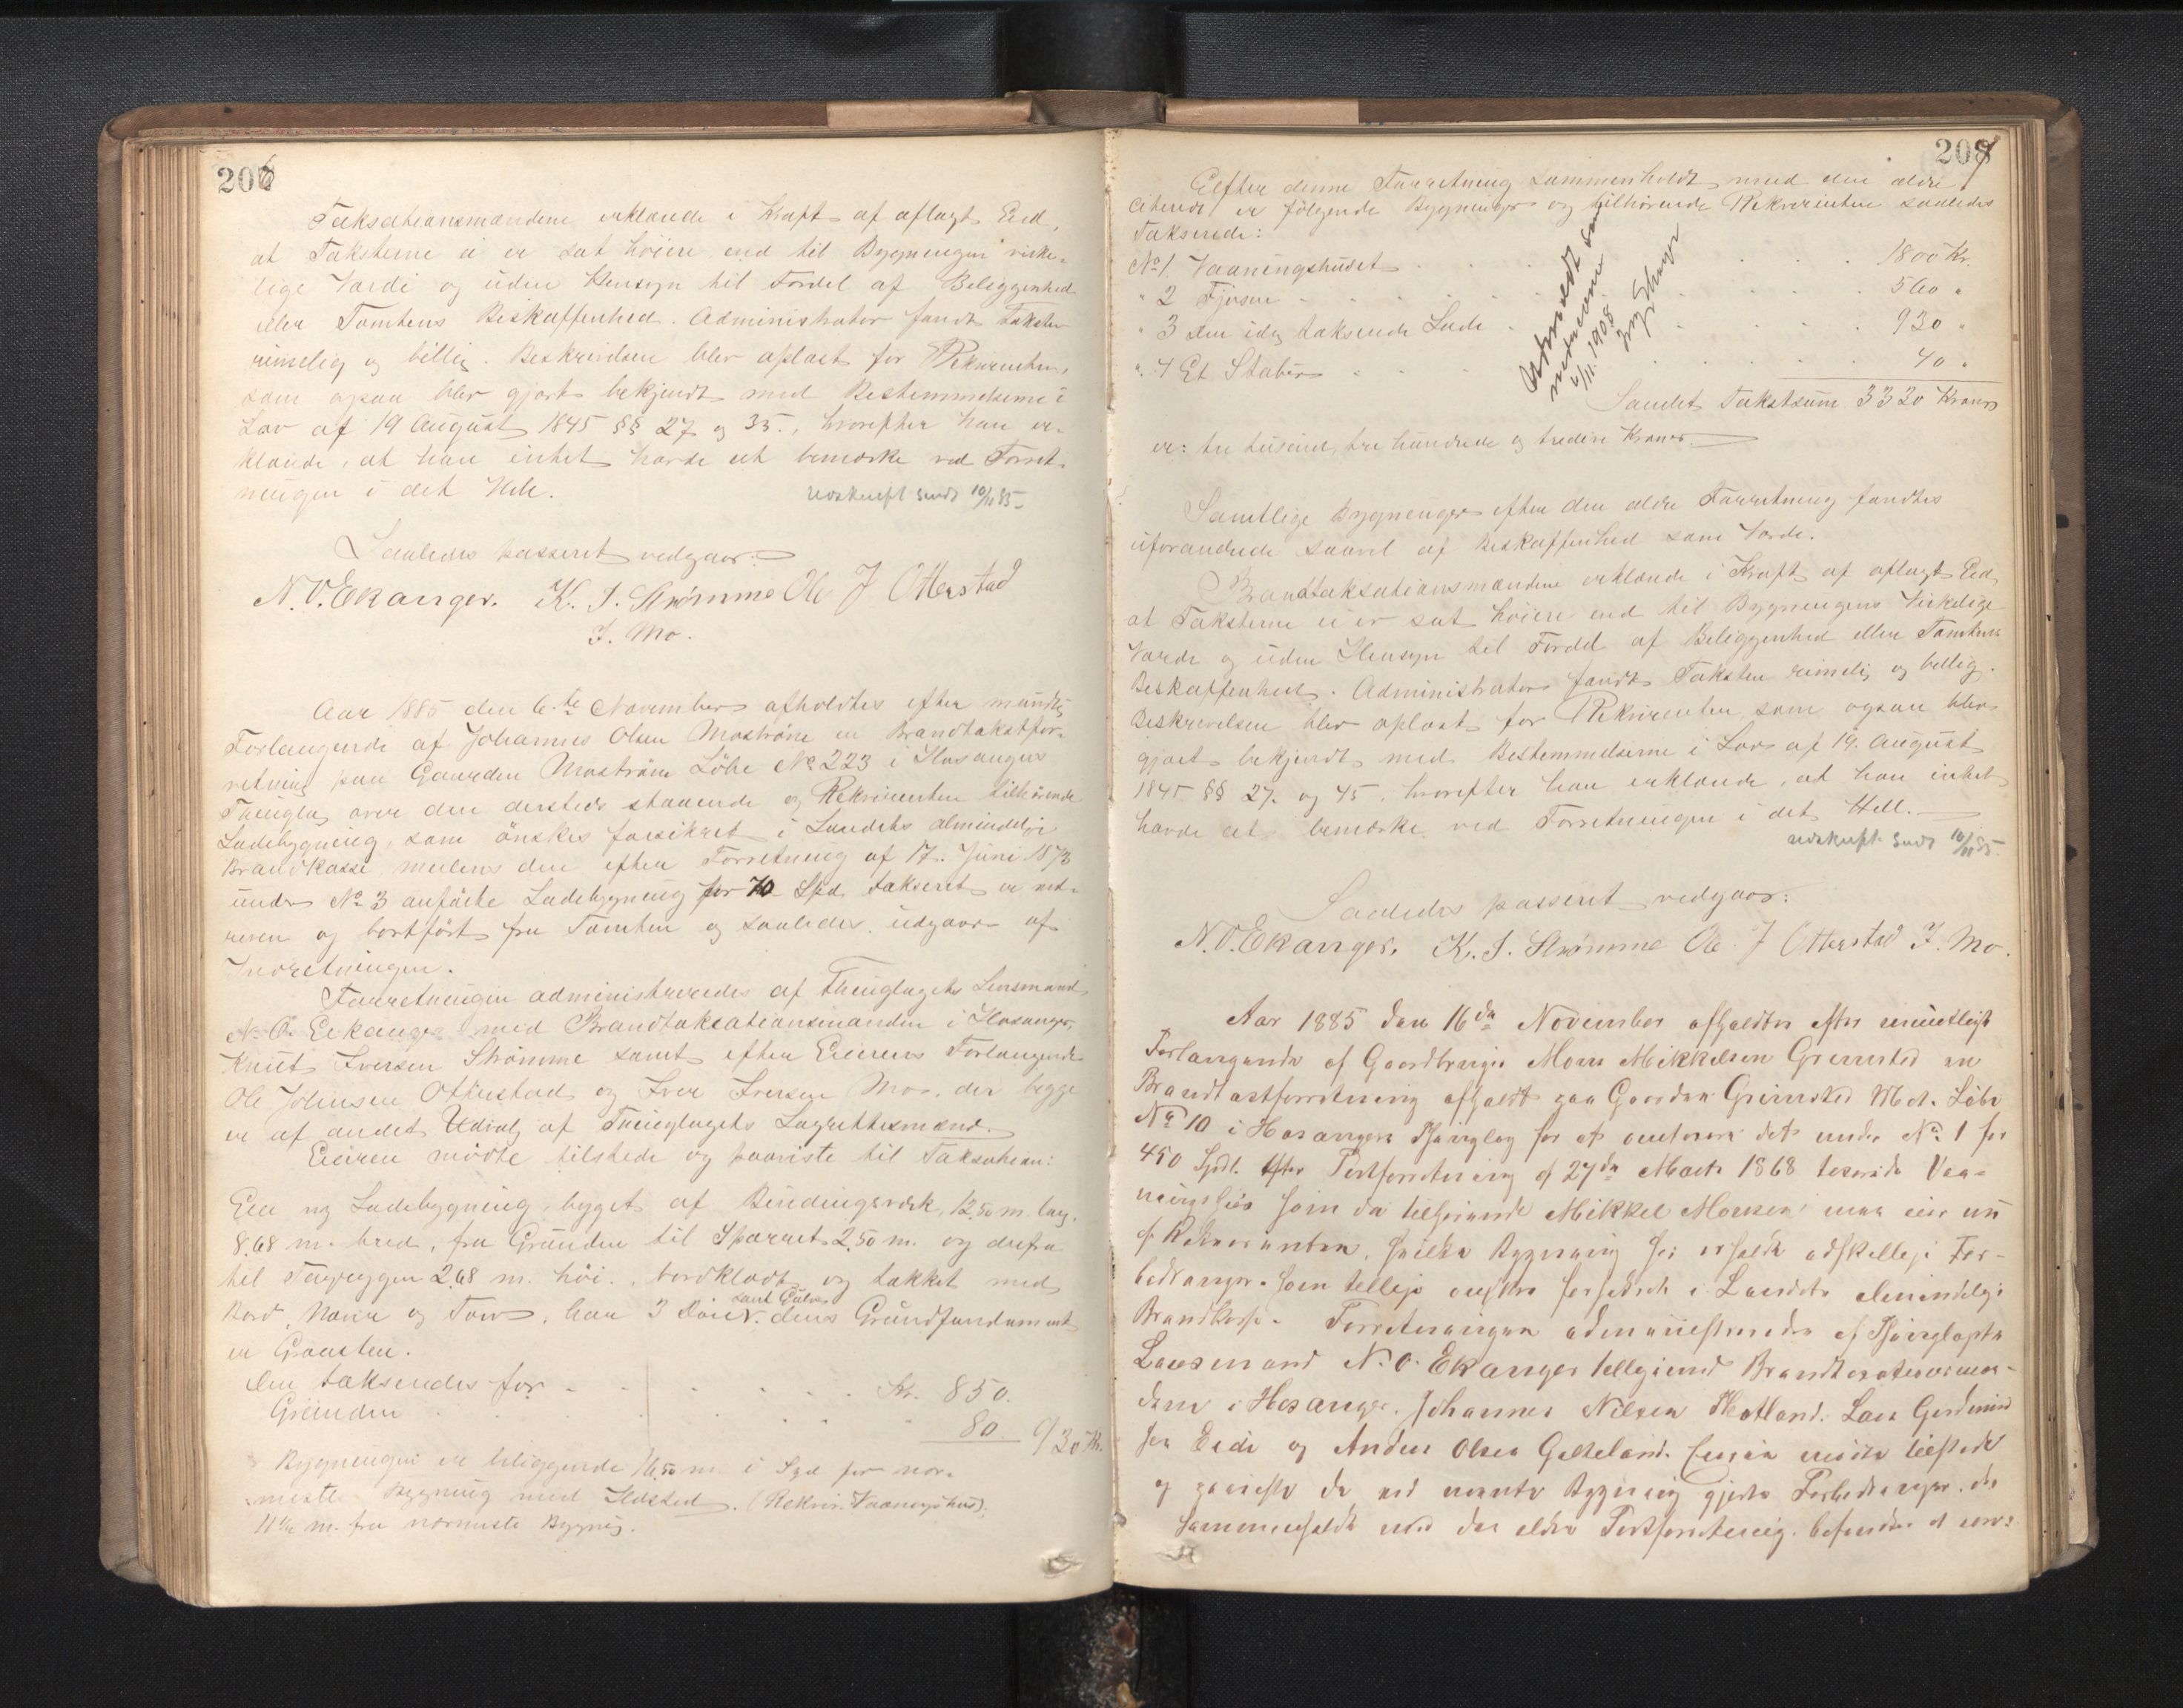 206
Taksationsmændene erklærede i Kraft af aflagt Eed,
at Taksterne ei er sat høiere end til Bygningens virke-
lige Værdi og uden Hensyn til Fordel af Beliggenhed
eller Tomtens Beskaffenhed. Administrator fandt Taksten
rimelig og billig. Beskrivelsen blev oplæst for Rekvirenten,
som ogsaa blev gjort bekjendt med Bestemmelserne i
Lov af 19 August 1845 §§ 27 og 35., hvorefter han er-
klærede, at han intet havde at bemærke ved Forret-
ningen i det Hele.
udskrift sendt 10/11 85
Saaledes passeret vedgaar:
N. O. Ekanger. K. I. Strømme Ole J Otterstad
I. Mo.
Aar 1885 den 6.te November afholdtes efter mundtlig
Forlangende af Johannes Olsen Mostrøm en Brandtakstfor-
retning paa Gaarden Mostrøm Løbe No 223 i Hosangers
Thinglag over den dersteds staaende og Rekvirenten tilhørende
Ladebygning, som ønskes forsikret i Landets almindelige
Brandkasse, medens den efter Forretning af 17. Juni 1873
under No 3 anførte Ladebygning for 70 Spd. takseret er ned-
reven og bortført fra Tomten og saaledes udgaar af
Indretningen.
Forretningen administreredes af Thinglagets Lensmand
N. O. Eekanger med Brandtaksationsmanden i Hosanger,
Knut Iversen Strømme samt efter Eierens Forlangende
Ole Johnsen Otterstad og Iver Iversen Mo, der begge
er af andet Udvalg af Thinglagets Lagrettesmænd.
Eieren mødte tilstede og paaviste til Taksation:
Een ny Ladebygning, bygget af Bindingsværk, 12,50 m. lang,
8,68 m. bred, fra Grunden til Sparret 2,50 m. og derfra
til Tagryggen 2,68 m. høi., bordklædt og takket med
samt Gulv
Bord, Næver og Torv, har 3 Døre. dens Grundfundament
er Graasten.
Den takseredes for . . . . . . Kr. 850.
Grunden . . . . . . " 80 930 Kr.
Bygningen er beliggende 16,50 m. i Syd for nær-
meste Bygning med Ildsted. (Rekvir. Vaaningshus),
11 1/2 m. fra nærmeste Bygnig.
207
Eefter denne Forretning sammenholdt med den ældre
citerede er følgende Bygninger og tilhørende Rekvirenten saaledes
Takserede:
No 1. Vaaningshuset . . . . . . 1800 Kr.
" 2 Fjøsen . . . . . . 560 "
" 3 Den idag takserede Lade . . . . . . 930 "
" 4 Et Stabur . . . . . . 40 "
Samlet Takstsum 3330 Kroner
er: tre tusind tre hundrede og tredive Kroner.
Udmeldt som
nedreven
6/11. 1908
Samtlige Bygninger efter den ældre Forretning fandtes
uforandrede saavel af Beskaffenhed som Værdi.
Brandtaksationsmændene erklærede i Kraft af aflagt Eed,
at Taksterne ei er sat høiere end til Bygningens Virkelige
Værdi og uden Hensyn til Fordel af Beliggenhed eller Tomtens
Beskaffenhed. Administrator fandt Taksten rimelig og billig.
Beskrivelsen blev oplæst for Rekvirenten, som ogsaa blev
gjort bekjendt med Bestemmelserne i Lov af 19. August
1845 §§ 27. og 45, hvorefter han erklærede, at han intet
havde at bemærke ved Forretningen i det Hell.
udskrift sendt 10/11 85.
Saaledes passeret vedgaar:
N. O. Ekanger. K. I. Strømme Ole J Otterstad I. Mo.
Aar 1885 den 16de November afholdtes efter mundtligt
Forlangende af Gaardbruger Mons Mikkelsen Grimsted en
Brandtaxtforretning afholdt paa Gaarden Grimsted Mat. Løbe
No 10 i Hosangers Thinglag for at omtaxere det under No 1 for
450 Spdl. efter Taxtforretning af 27de Marts 1868 taxerede Vaa-
ningshus som da tilhørende Mikkel Monsen men eies nu
af Rekvirenten, hvilken Bygning har erholdt adskillige For-
bedringer. som tillige ønskes forsikret i Landets almindelige
Brandkasse. Forretningen administreredes af Thinglagets
Lensmand N. O. Ekanger tilligemed Brandtaxationsmæn-
dene i Hosanger. Johannes Nilsen Hotland. Lars
Eide og Anders Olsen Galteland. Eieren mødte tilstede
og paaviste de ved nævnte Bygning gjorte Forbedringer. der
sammenholdt med den ældre Taxtforretning. befandtes at være: